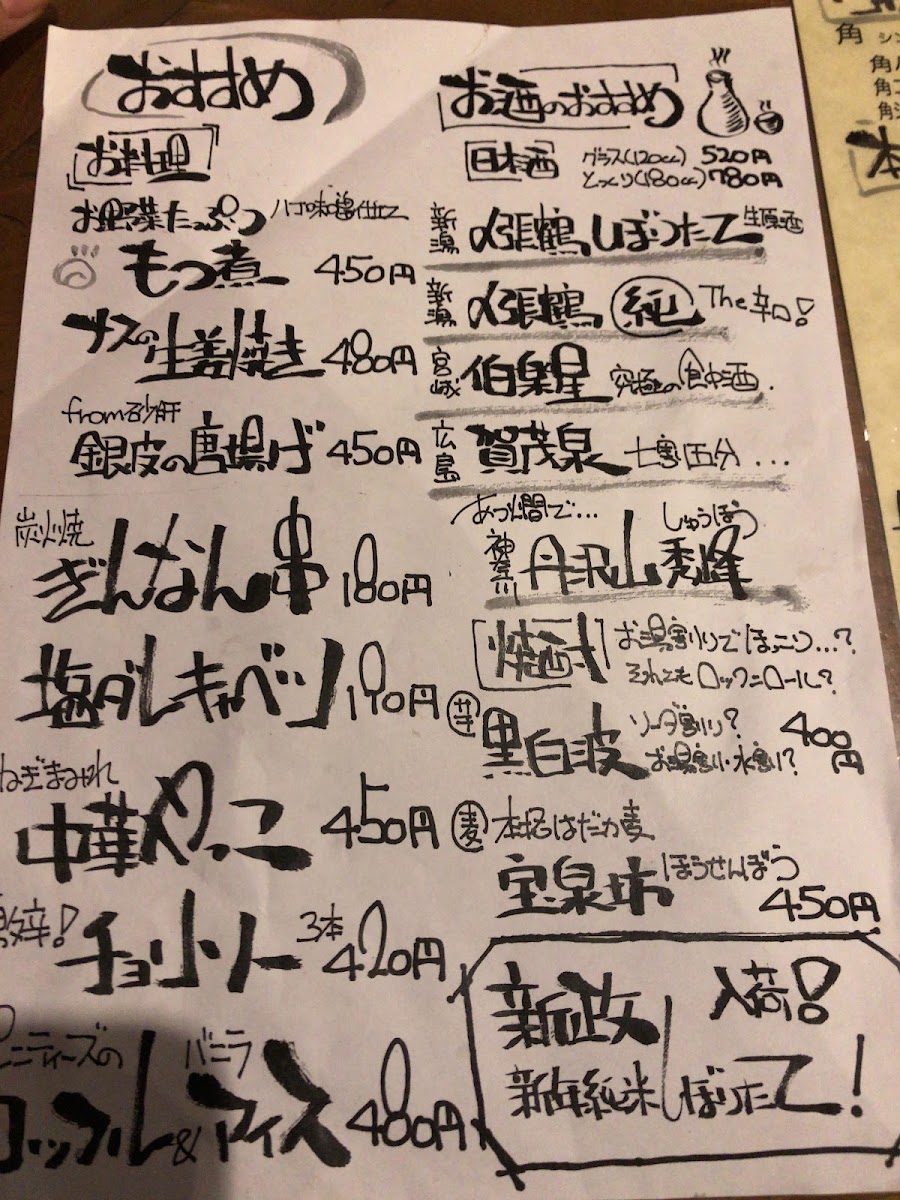 おすすめ
お料理
お野菜たっぷり 八丁味噌仕立て
もつ煮 450円
ナスの生姜焼き 480円
from砂肝
銀皮の唐揚げ 450円
炭火焼
ぎんなん串 180円
塩ダレキャベツ 190円
ねぎまみれ
中華やっこ 450円
激辛! チョリソー 3本 420円
ミニティーズの
ワッフル&バニラアイス 480円
お酒のおすすめ
日本酒 グラス(120cc) 520円
とっくり(180cc) 780円
新潟 〆張鶴 しぼりたて 生原酒
新潟 〆張鶴 純 The 辛口!
宮城 伯楽星 究極の食中酒.
広島 賀茂泉 七割五分...
あつ燗で...
神奈川 丹沢山 秀峰 しゅうほう
焼酎 お湯割りでほっこり...?
それともロックンロール?
芋 黒白波 ソーダ割り?
お湯割り・水割り? 400円
麦 本格はだか麦
宝泉坊 ほうせんぼう
450円
新政 入荷!
新年純米しぼりたて!
角
角
角